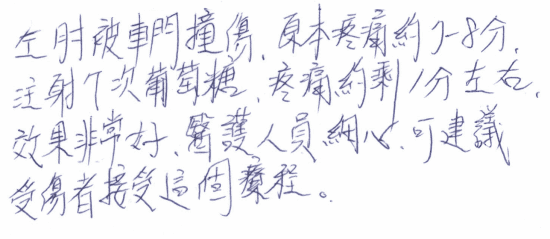 左肘被車門撞傷、原本疼痛約7-8分、
注射7次葡萄糖、疼痛約剩1分左右、
效果非常好、醫護人員細心、可建議
受傷者接受這個療程。